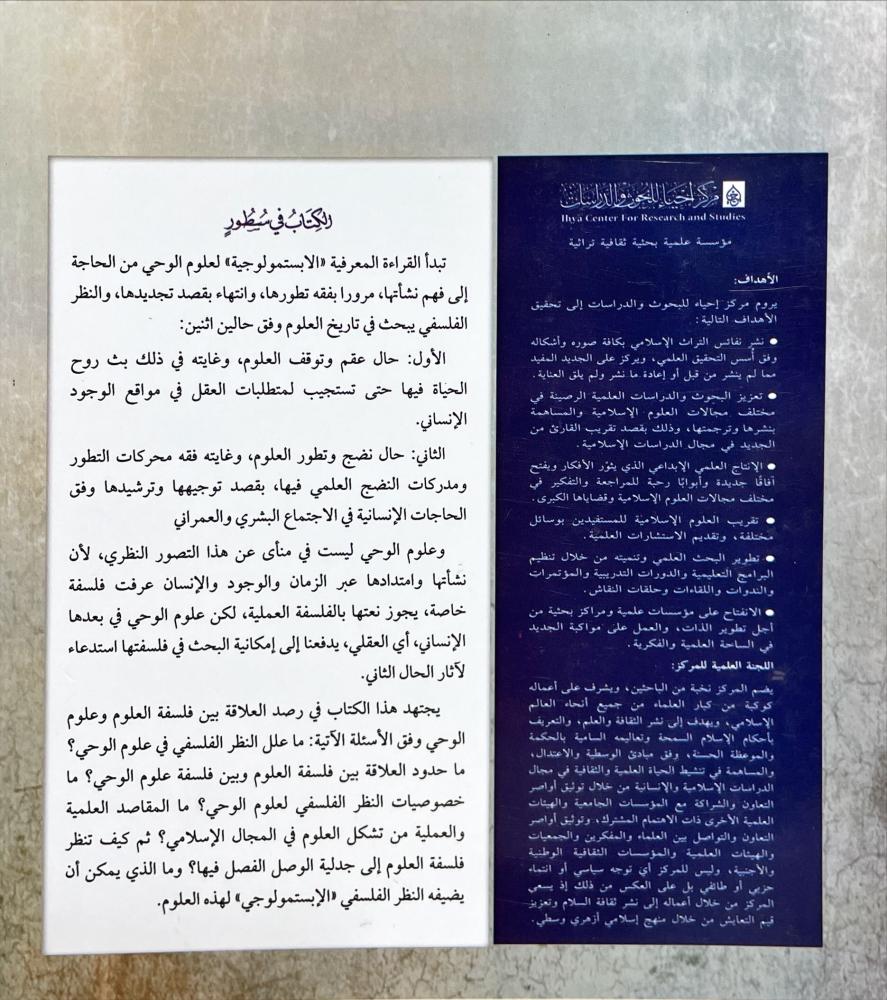 مركز إحياء للبحوث والدراسات
Ihya Center For Research and Studies
مؤسسة علمية بحثية ثقافية تراثية
الأهداف:
يروم مركز إحياء للبحوث والدراسات إلى تحقيق
الأهداف التالية:
● نشر نفائس التراث الإسلامي بكافة صوره وأشكاله
وفق أسس التحقيق العلمي، ويركز على الجديد المفيد
مما لم ينشر من قبل أو إعادة ما نشر ولم يلق العناية.
● تعزيز البحوث والدراسات العلمية الرصينة في
مختلف مجالات العلوم الإسلامية والمساهمة
بنشرها وترجمتها، وذلك بقصد تقريب القارئ من
الجديد في مجال الدراسات الإسلامية.
● الإنتاج العلمي الإبداعي الذي يثوّر الأفكار ويفتح
آفاقًا جديدة وأبوابًا رحبة للمراجعة والتفكير في
مختلف مجالات العلوم الإسلامية وقضاياها الكبرى.
● تقريب العلوم الإسلامية للمستفيدين بوسائل
مختلفة، وتقديم الاستشارات العلمية.
● تطوير البحث العلمي وتنميته من خلال تنظيم
البرامج التعليمية والدورات التدريبية والمؤتمرات
والندوات واللقاءات وحلقات النقاش.
● الانفتاح على مؤسسات علمية ومراكز بحثية من
أجل تطوير الذات، والعمل على مواكبة الجديد
في الساحة العلمية والفكرية.
اللجنة العلمية للمركز:
يضم المركز نخبة من الباحثين، ويشرف على أعماله
كوكبة من كبار العلماء من جميع أنحاء العالم
الإسلامي، ويهدف إلى نشر الثقافة والعلم، والتعريف
بأحكام الإسلام السمحة وتعاليمه السامية بالحكمة
والموعظة الحسنة، وفق مبادئ الوسطية والاعتدال،
والمساهمة في تنشيط الحياة العلمية والثقافية في مجال
الدراسات الإسلامية والإنسانية من خلال توثيق أواصر
التعاون والشراكة مع المؤسسات الجامعية والهيئات
العلمية الأخرى ذات الاهتمام المشترك، وتوثيق أواصر
التعاون والتواصل بين العلماء والمفكرين والجمعيات
والهيئات العلمية والمؤسسات الثقافية الوطنية
والأجنبية، وليس للمركز أي توجه سياسي أو انتماء
حزبي أو طائفي بل على العكس من ذلك إذ يسعى
المركز من خلال أعماله إلى نشر ثقافة السلام وتعزيز
قيم التعايش من خلال منهج إسلامي أزهري وسطي.
الكتاب في سطور
تبدأ القراءة المعرفية «الابستمولوجية» لعلوم الوحي من الحاجة
إلى فهم نشأتها، مرورا بفقه تطورها، وانتهاء بقصد تجديدها، والنظر
الفلسفي يبحث في تاريخ العلوم وفق حالين اثنين:
الأول: حال عقم وتوقف العلوم، وغايته في ذلك بث روح
الحياة فيها حتى تستجيب لمتطلبات العقل في مواقع الوجود
الإنساني.
الثاني: حال نضج وتطور العلوم، وغايته فقه محركات التطور
ومدركات النضج العلمي فيها، بقصد توجيهها وترشيدها وفق
الحاجات الإنسانية في الاجتماع البشري والعمراني
وعلوم الوحي ليست في منأى عن هذا التصور النظري، لأن
نشأتها وامتدادها عبر الزمان والوجود والإنسان عرفت فلسفة
خاصة، يجوز نعتها بالفلسفة العملية، لكن علوم الوحي في بعدها
الإنساني، أي العقلي، يدفعنا إلى إمكانية البحث في فلسفتها استدعاء
لآثار الحال الثاني.
يجتهد هذا الكتاب في رصد العلاقة بين فلسفة العلوم وعلوم
الوحي وفق الأسئلة الآتية: ما علل النظر الفلسفي في علوم الوحي؟
ما حدود العلاقة بين فلسفة العلوم وبين فلسفة علوم الوحي؟ ما
خصوصيات النظر الفلسفي لعلوم الوحي؟ ما المقاصد العلمية
والعملية من تشكل العلوم في المجال الإسلامي؟ ثم كيف تنظر
فلسفة العلوم إلى جدلية الوصل الفصل فيها؟ وما الذي يمكن أن
يضيفه النظر الفلسفي «الإبستمولوجي» لهذه العلوم.